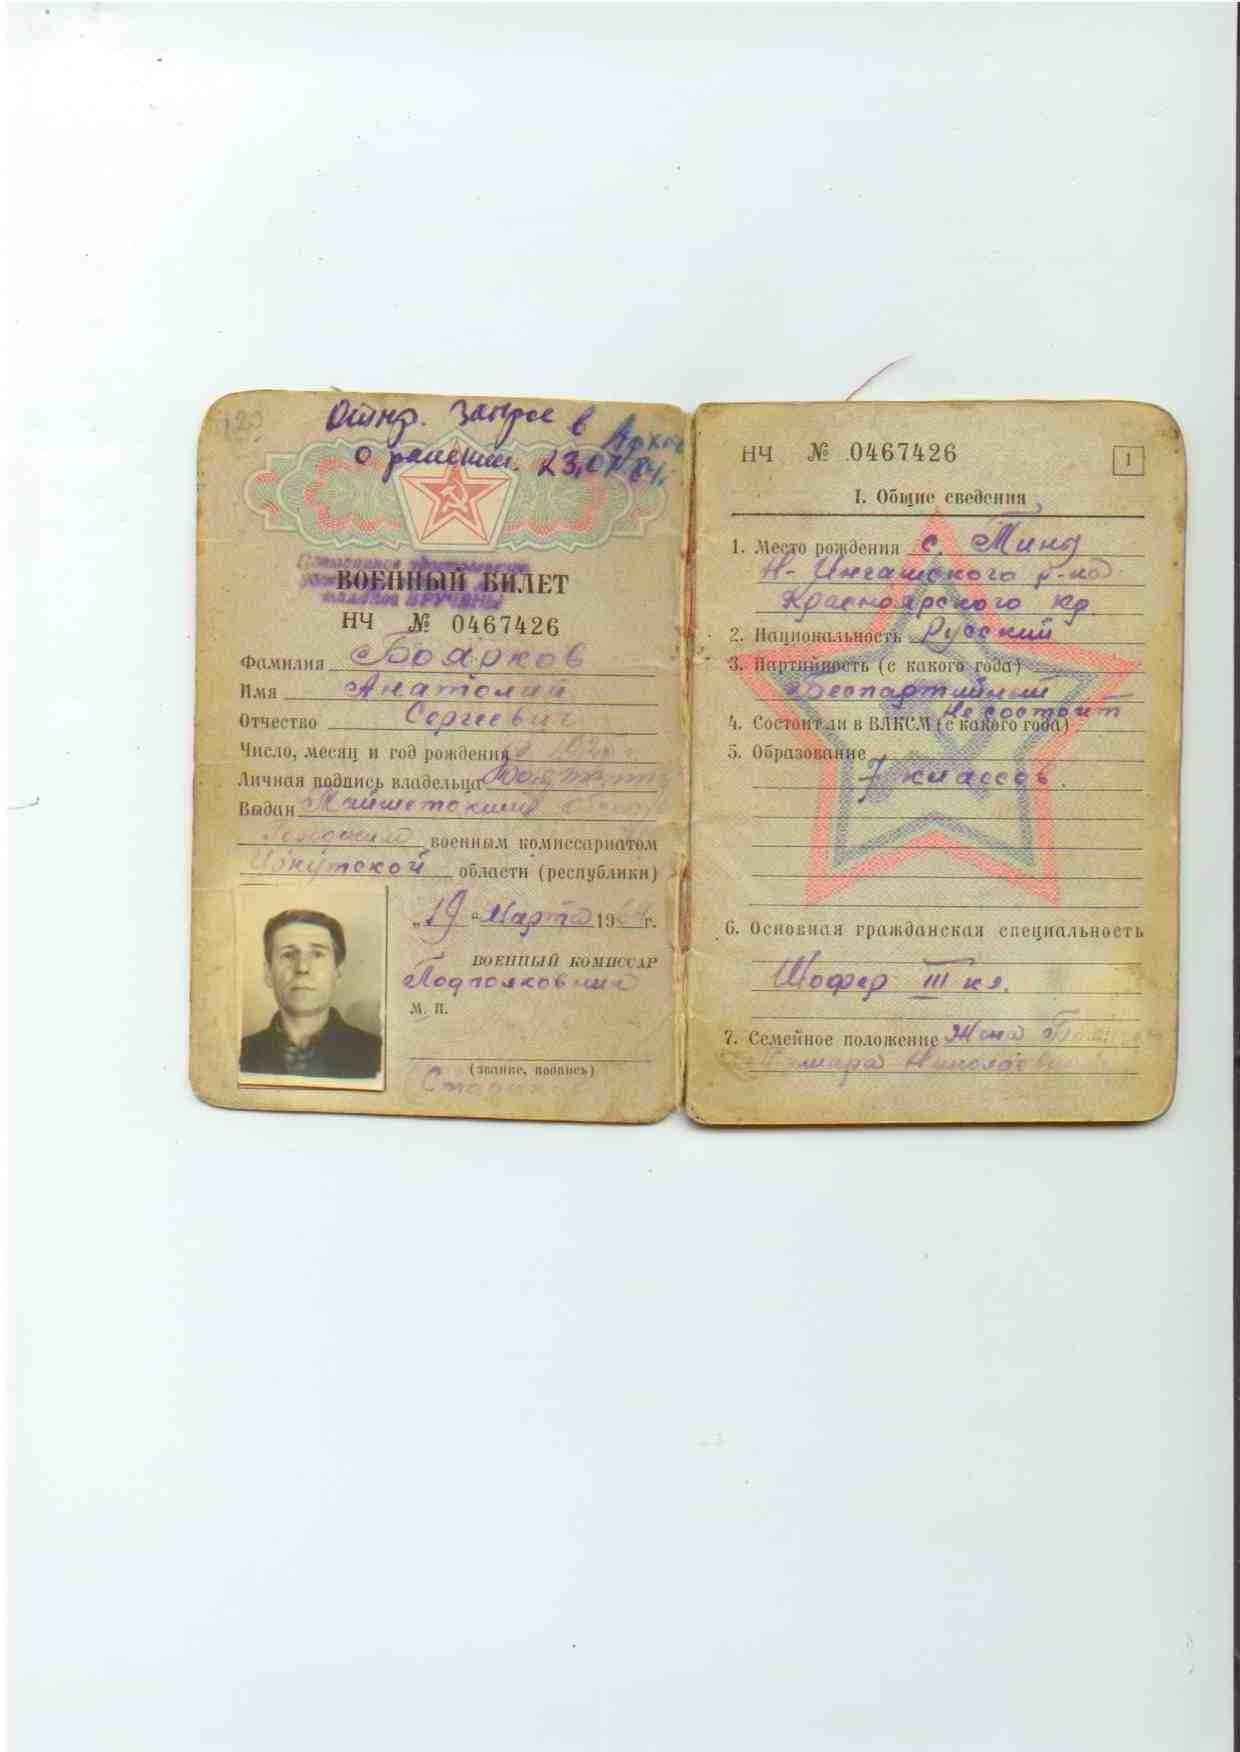 Отпр. запрос в Архив
о ранении.
ВОЕННЫЙ БИЛЕТ
НЧ № 0467426
Фамилия Боярков
Имя Анатолий
Отчество Сергеевич
Число, месяц и год рождения
Личная подпись владельца
Выдан
военным комиссариатом
Иркутской области (республики)
„19 " Марта 19 г.
ВОЕННЫЙ КОМИССАР
Подполковник
М. П.
(звание, подпись)
НЧ № 0467426
1
I. Общие сведения
1. Место рождения с. Тины
Н-Ингашского р-на
Красноярского кр.
2. Национальность Русский
3. Партийность (с какого года)
Беспартийный
Не состоит
4. Состоит ли в ВЛКСМ (с какого года)
5. Образование
7 классов.
6. Основная гражданская специальность
Шофер III кл.
7. Семейное положение Жена
Тамара Николаевна